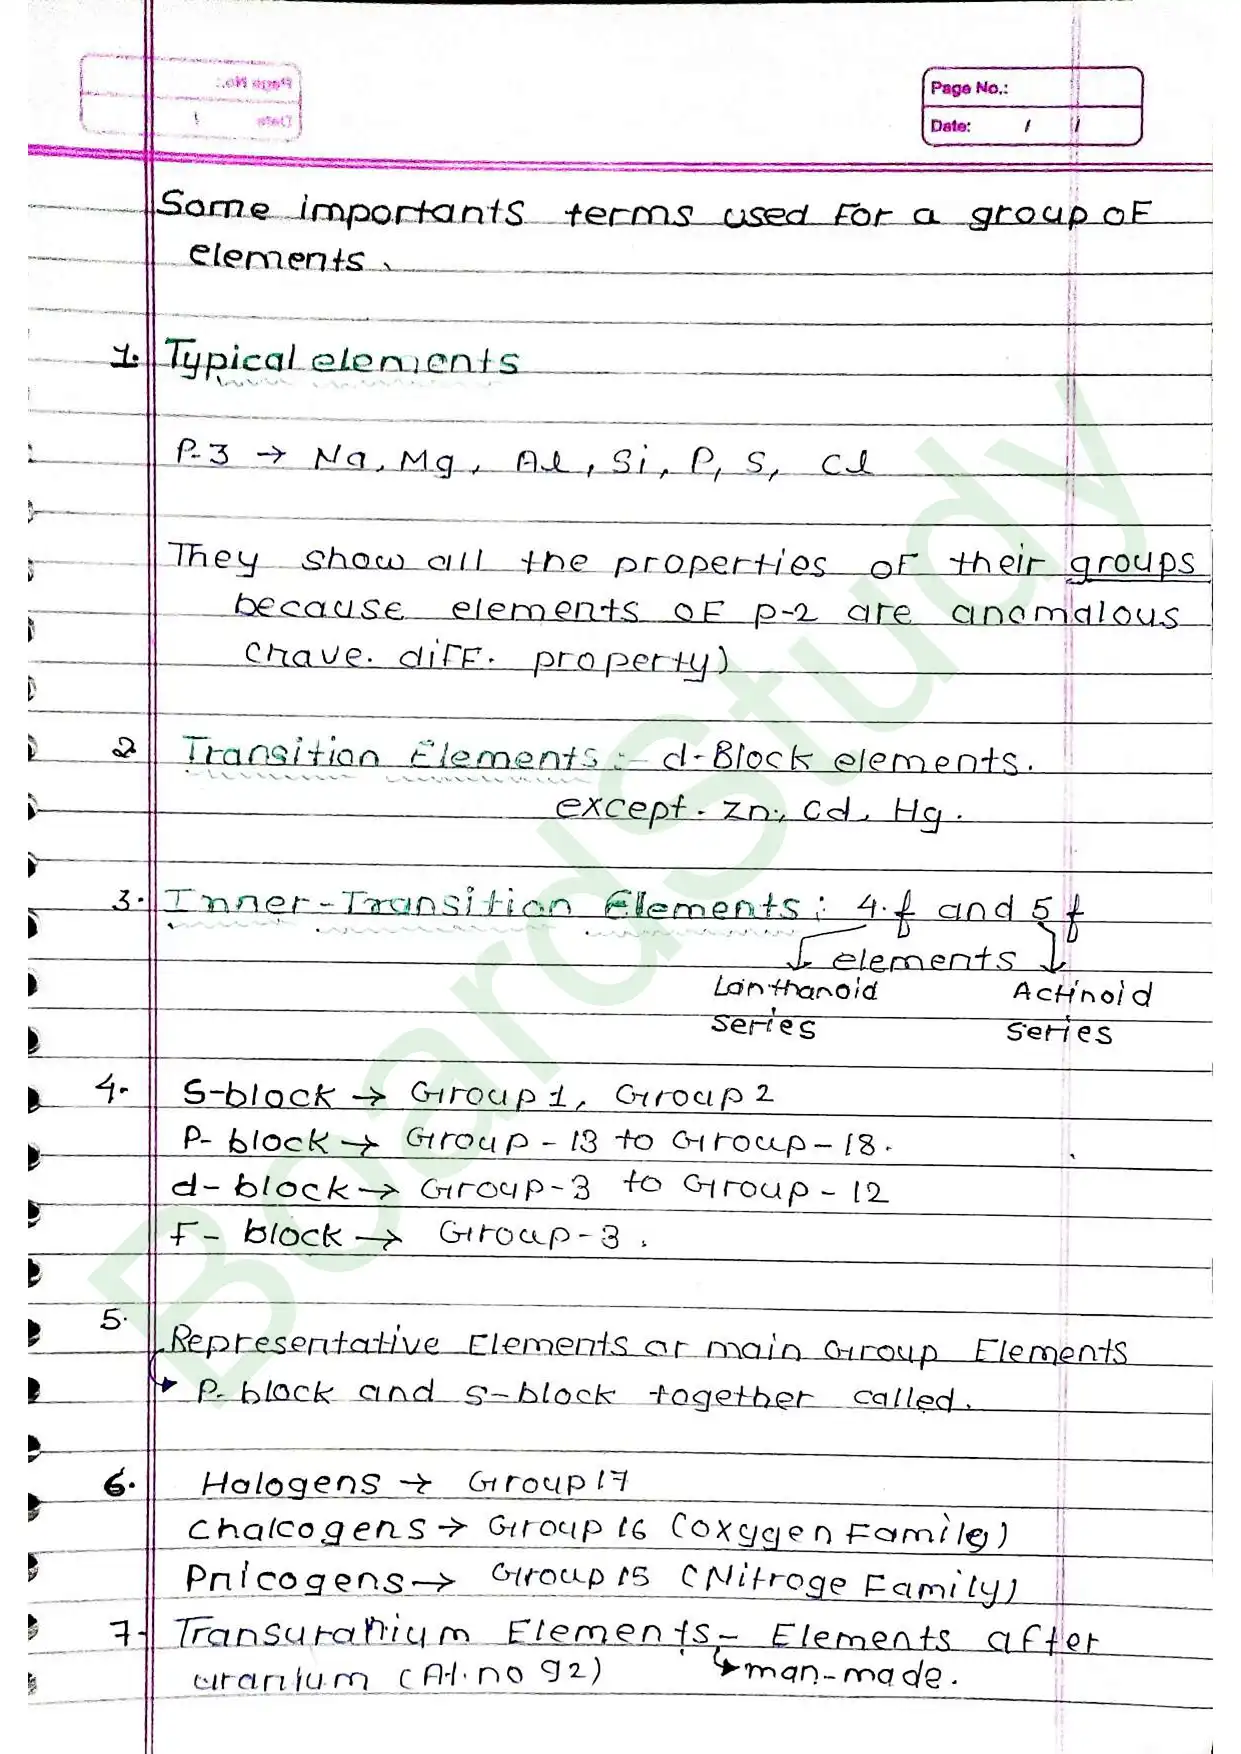 Page No.:
Date: / /
Page No.:
Date /
Some importants terms used for a group of
elements.
1. Typical elements
P-3 → Na, Mg, Al, Si, P, S, Cl
They show all the properties of their groups
because elements of p-2 are anomalous
(have. diff. property)
2 Transition Elements :- d-Block elements.
except. Zn, Cd, Hg.
3. Inner-Transition Elements: 4.f and 5f
elements
Lanthanoid Actinoid
series series
4. S-block → Group 1, Group 2
P- block → Group - 13 to Group - 18.
d- block → Group-3 to Group - 12
F- block → Group-3.
5.
Representative Elements or main Group Elements
P-block and s-block together called.
6. Halogens → Group 17
Chalcogens → Group 16 (oxygen Family)
Pnicogens → Group 15 (Nitroge Family)
7- Transuranium Elements - Elements after
uranium (At.no 92) man-made.
BoardStudy